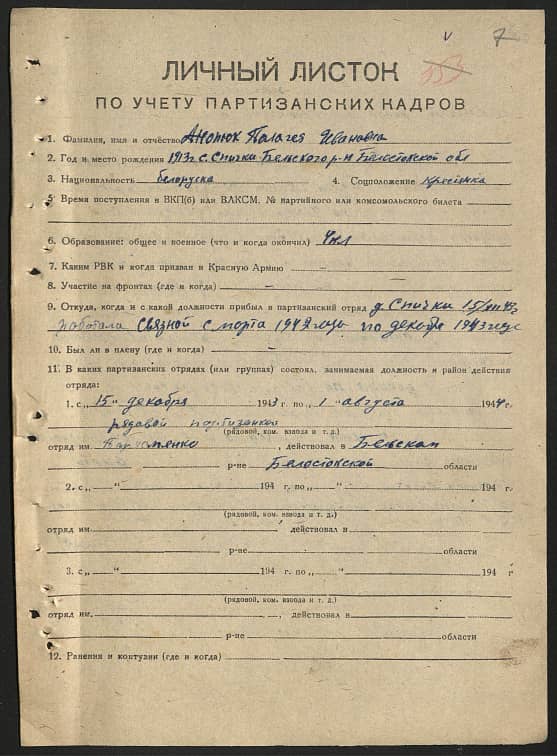 v 7
153
ЛИЧНЫЙ ЛИСТОК
ПО УЧЕТУ ПАРТИЗАНСКИХ КАДРОВ
1. Фамилия, имя и отчество Анотюк Палагея Ивановна
2. Год и место рождения 1913 г. с. Спички Бельского р-н Белостокской обл
3. Национальность белоруска 4. Соцположение Кресьянка
5. Время поступления в ВКП(б) или ВЛКСМ, № партийного или комсомольского билета
6. Образование: общее и военное (что и когда окончил) 4 кл
7. Каким РВК и когда призван в Красную Армию –
8. Участие на фронтах (где и когда) –
9. Откуда, когда и с какой должности прибыл в партизанский отряд д. Спички 15/XII 43 г
работала связной с марта 1942 года по декабрь 1943 года
10. Был ли в плену (где и когда) –
11. В каких партизанских отрядах (или группах) состоял, занимаемая должность и район действия
отряда:
1. с „15" декабря 1943 г. по „1" августа 1944 г.
рядовой партизанкой
(рядовой, ком. взвода и т. д.)
отряд им. , действовал в Бельском
р-не Белостокской области
2. с „ " 194 г. по „ " 194 г.
(рядовой, ком. взвода и т. д.)
отряд им. действовал в
р-не области
3. с „ " 194 г. по „ " 194 г
(рядовой, ком. взвода и т. д.)
отряд им. действовал в
р-не области
12. Ранения и контузии (где и когда)